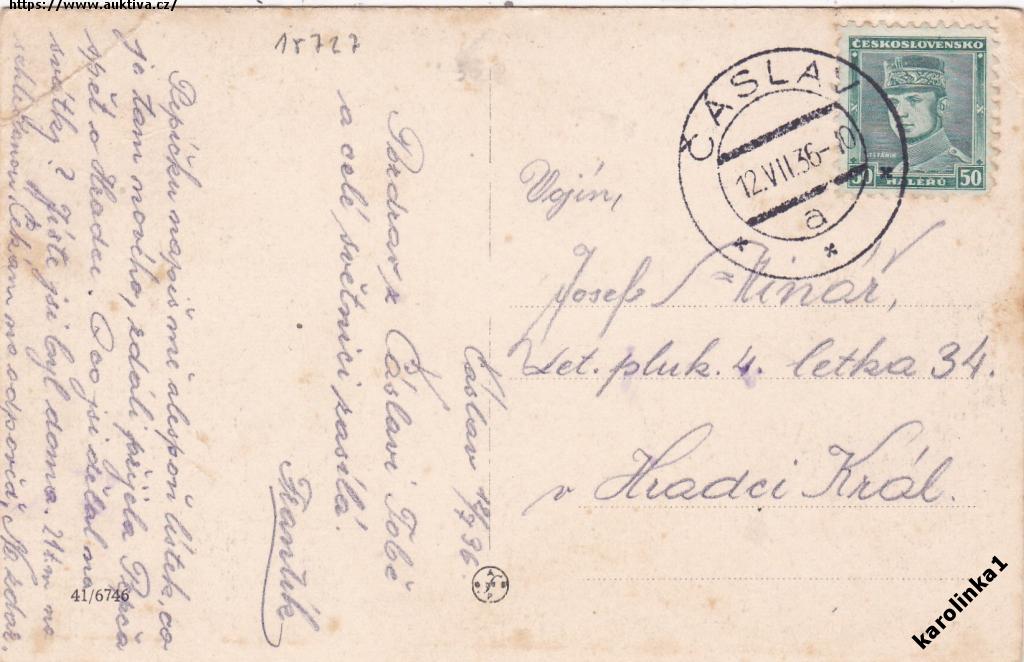 https://www.auktiva.cz/
18727
ČESKOSLOVENSKO
ŠTEFÁNIK
50 HALÉŘŮ 50
ČÁSLAV
12.VII.36-10
a
Vojín,
Josef Mlnář,
Let. pluk. 4. letka 34.
v Hradci Král.
Čáslav 12/7 36.
Pozdrav z Čáslavi Tobě
a celé světnici zasílá.
Frantík
Pepíčku napiš mi alespoň lístek, co
je tam nového, zdali přijela Pepča
zpět o Hradci. A co jsi dělal na
svátky? Jistě jsi byl doma. 21t.m. na
schledanou. Čekám na odpověď, Nazdar.
41/6746
karolinka1